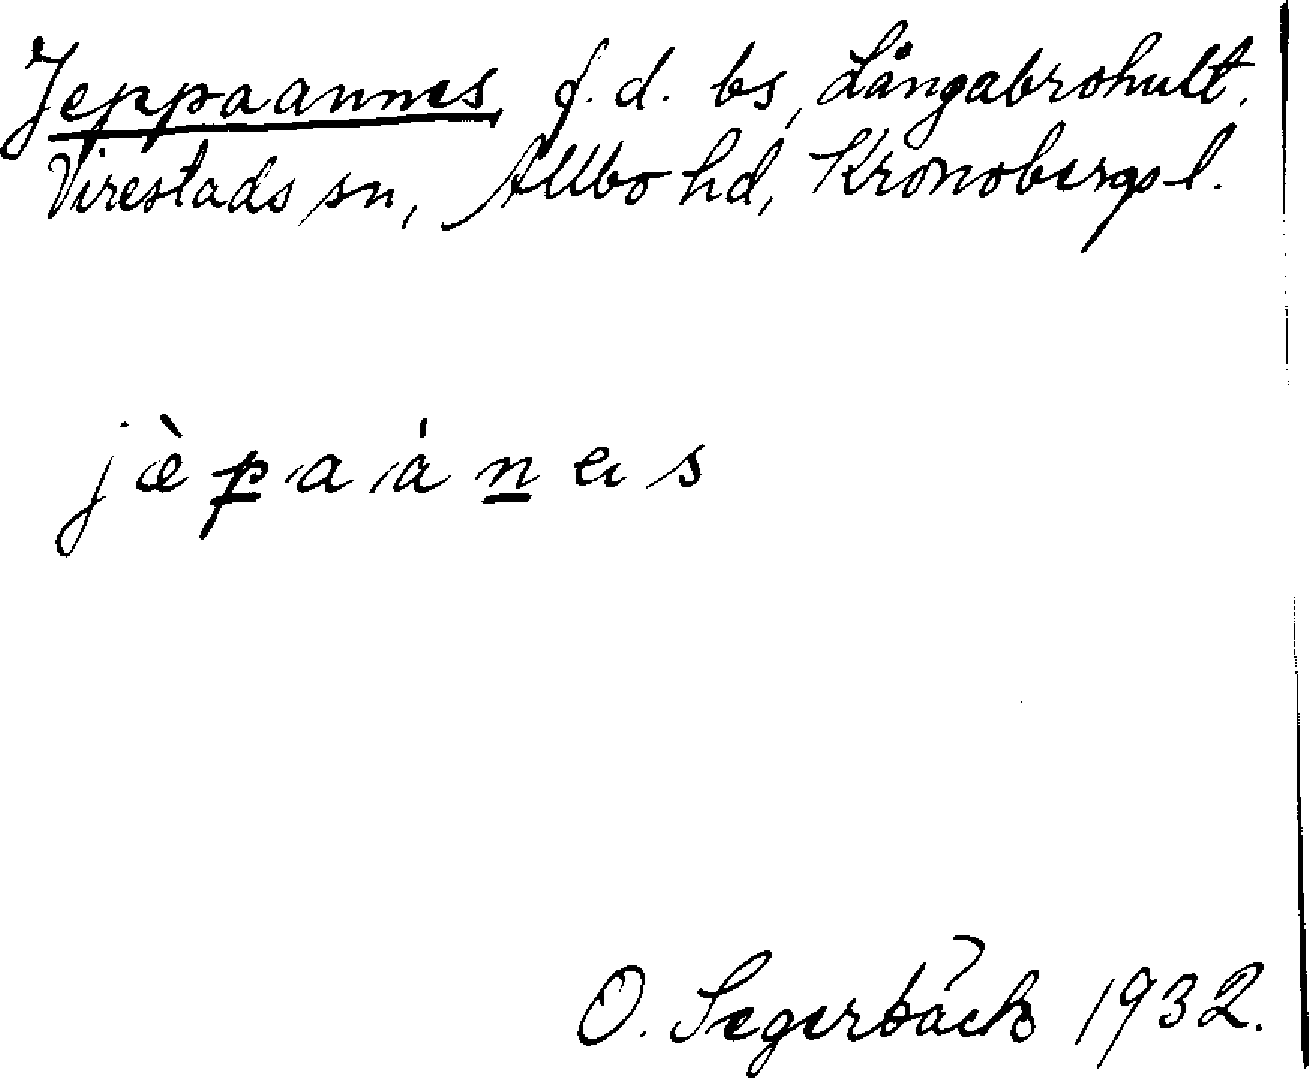 Jeppaannes, f.d. bs, Långabrohult.
Virestads sn, Allbo hd, Kronobergs l.
jæ̀p̲aán̲es
O. Segerbäck 1932.